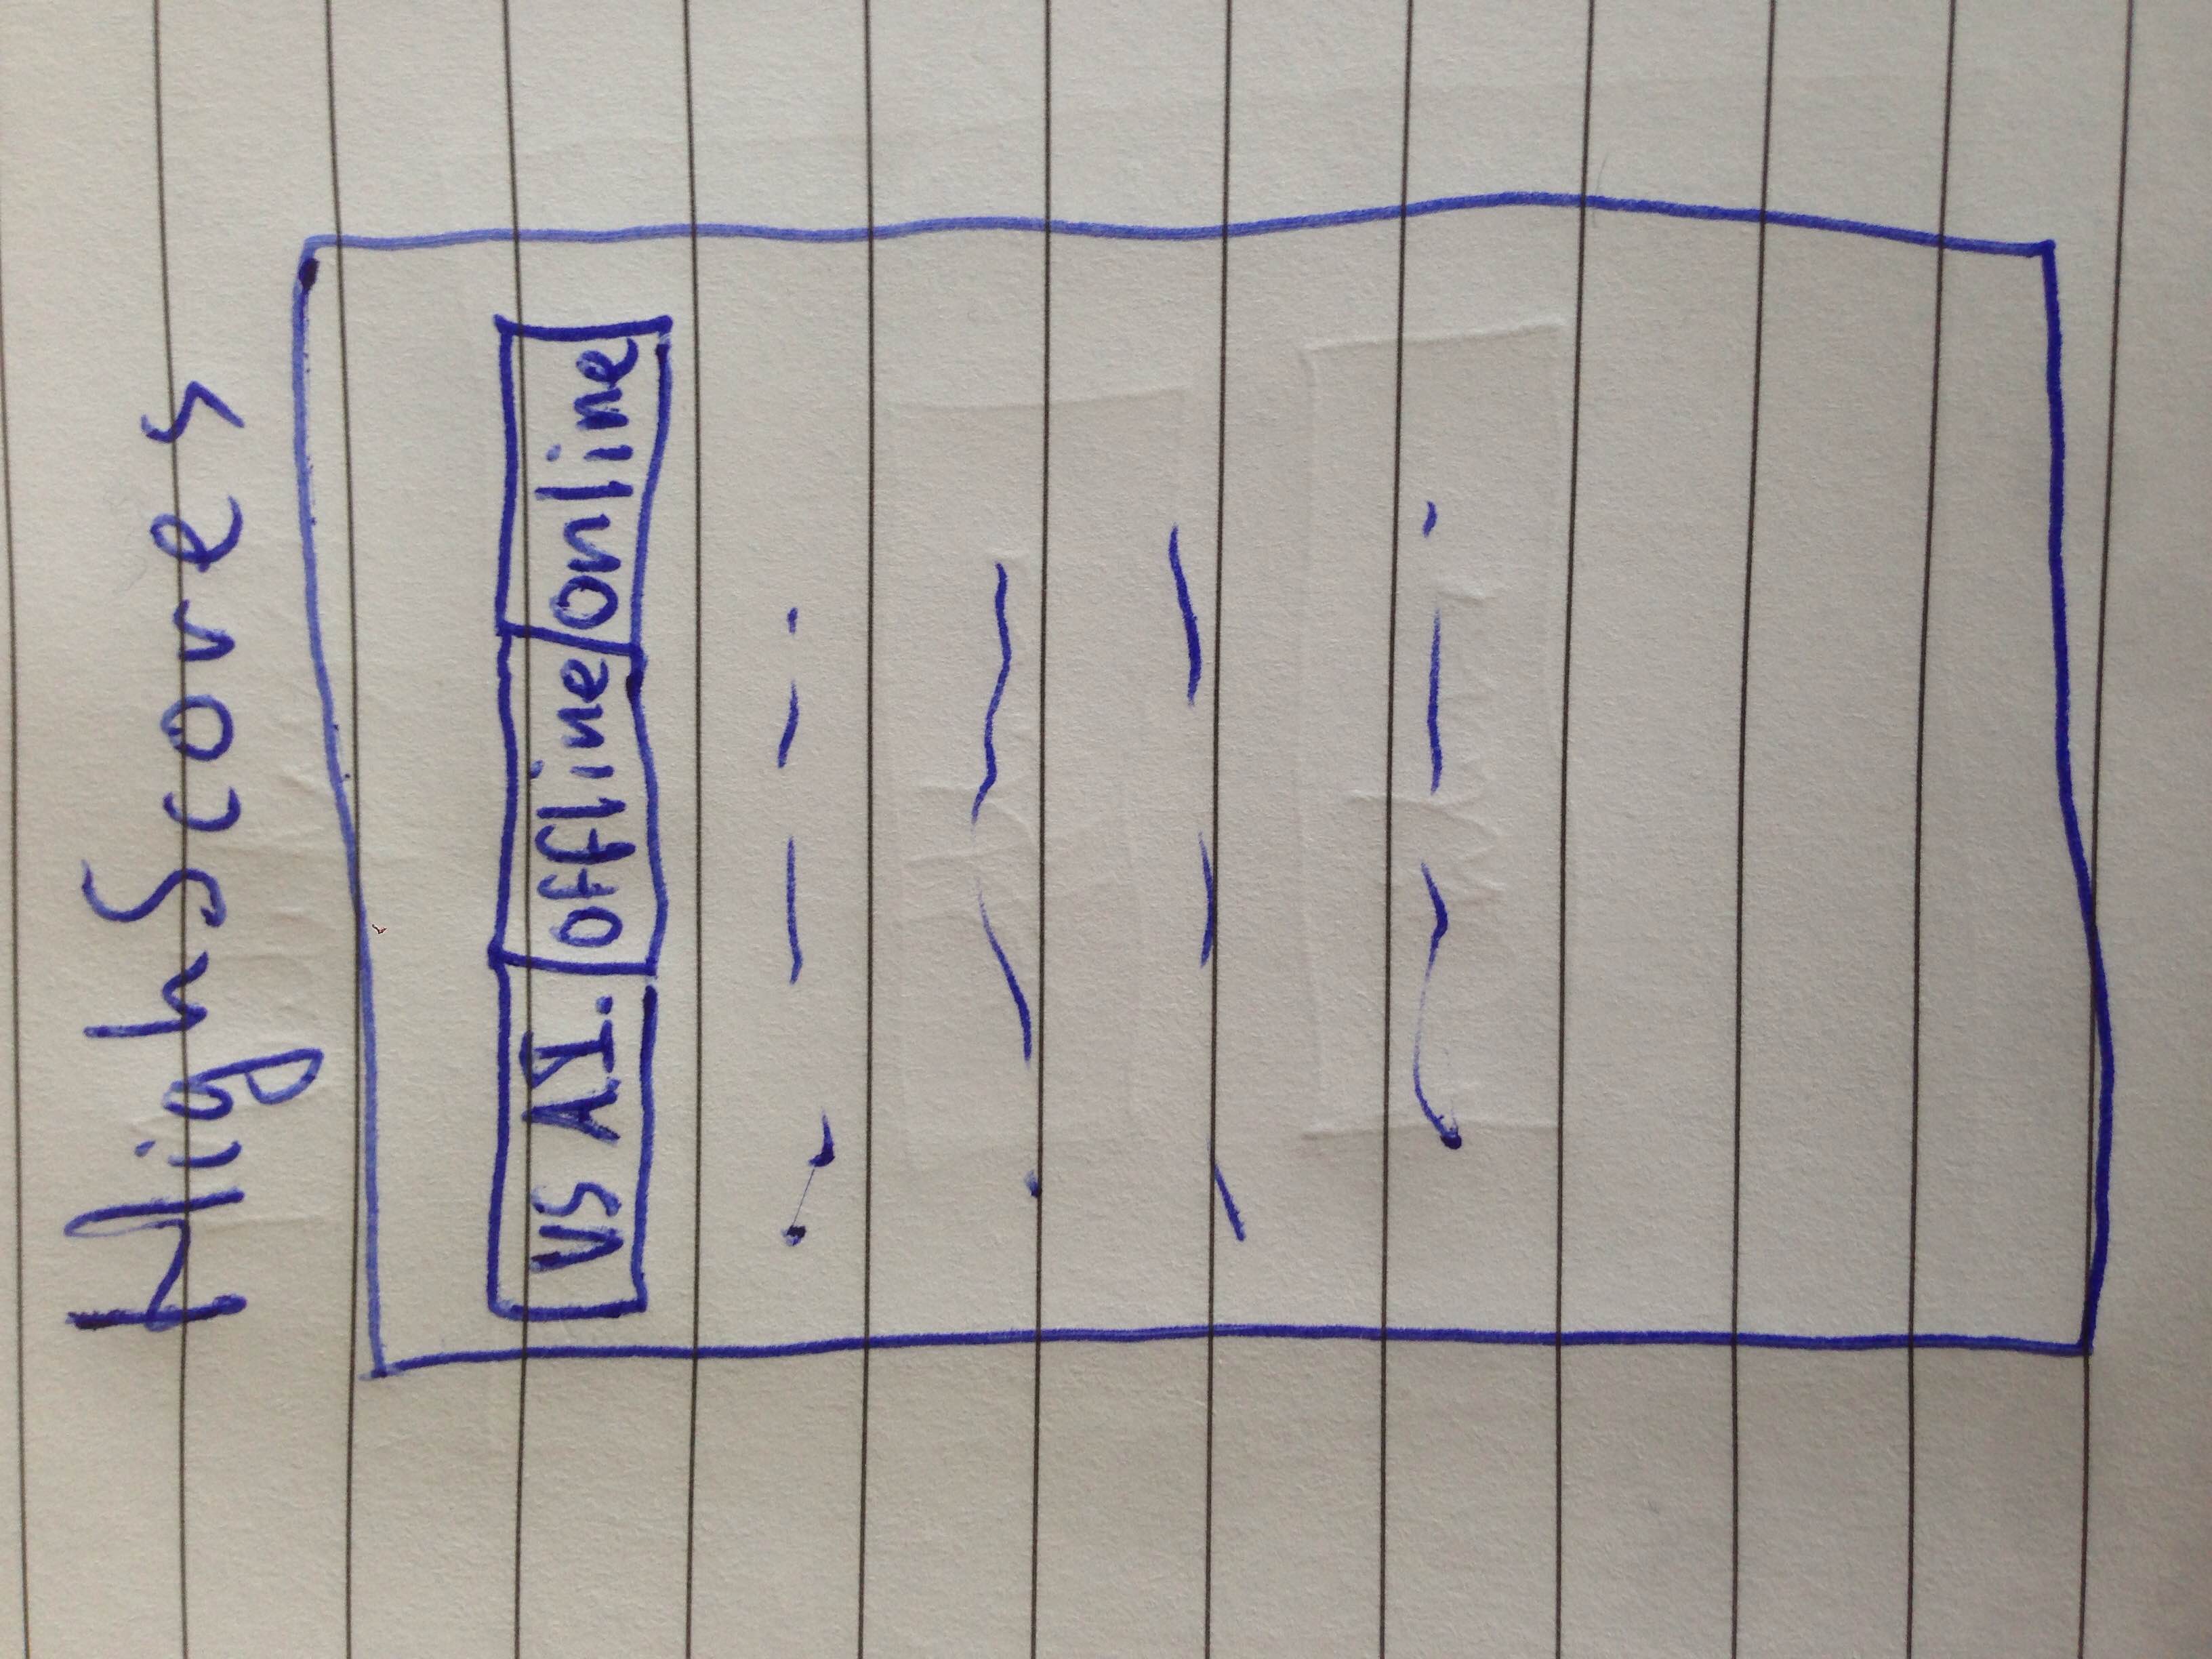 HighScores
VS AI. offline online